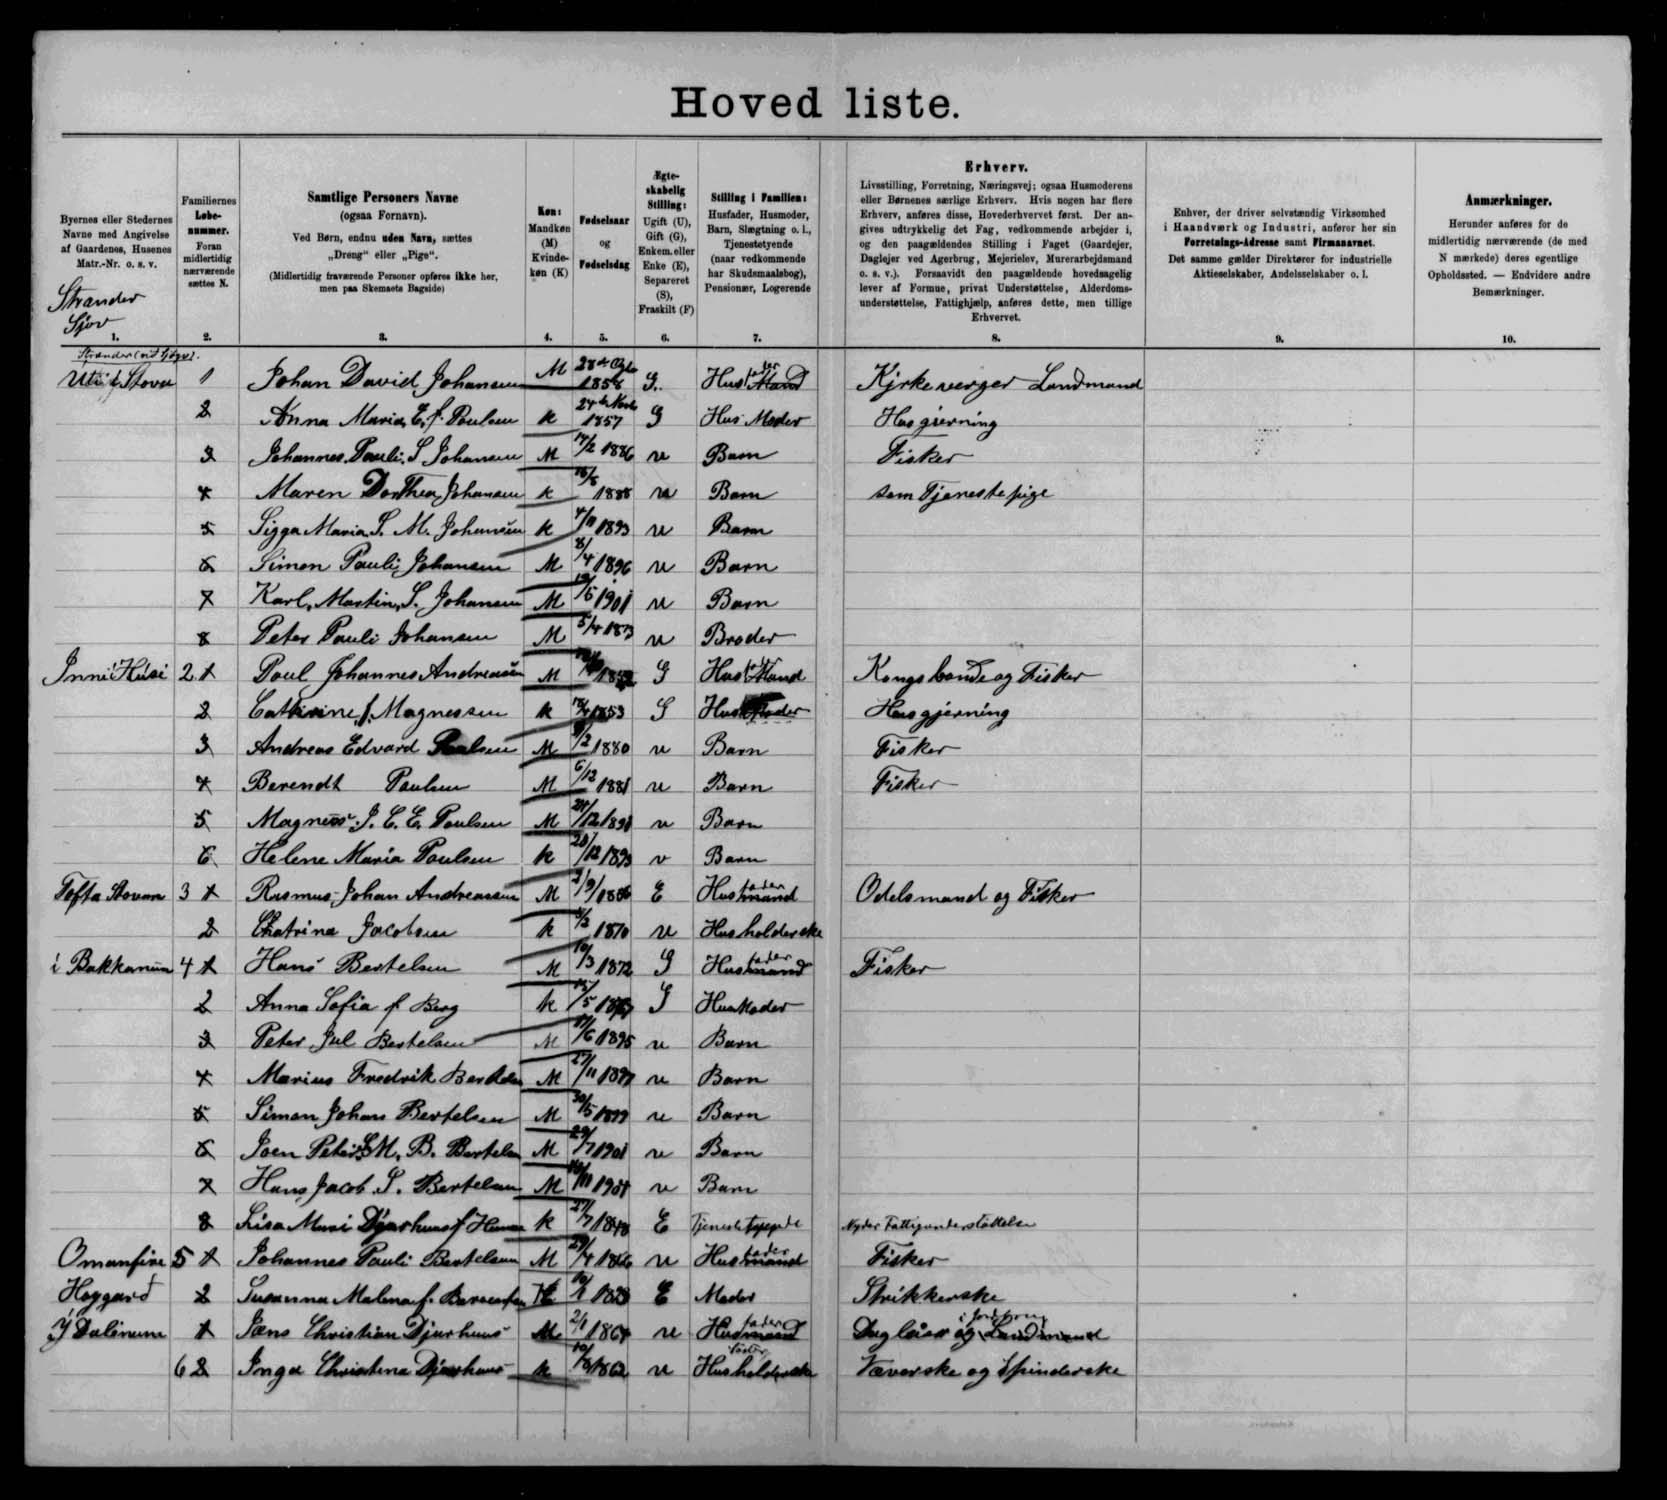 Hoved liste.
Byernes eller Stedernes
Navne med Angivelse
af Gaardenes, Husenes
Matr.-Nr. o. s. v.
Strander
Sjov
1.
Familiernes
Løbe-
nummer.
Foran
midlertidig
nærværende
sættes N.
2.
Samtlige Personers Navne
(ogsaa Fornavn).
Ved Børn, endnu uden Navn, sættes
„Dreng" eller „Pige".
(Midlertidig fraværende Personer opføres ikke her,
men paa Skemaets Bagside)
3.
Køn:
Mandkøn
(M)
Kvinde-
køn (K)
4.
Fødselsaar
og
Fødselsdag
5.
Ægte-
skabelig
Stilling:
Ugift (U),
Gift (G),
Enkem. eller
Enke (E),
Separeret
(S),
Fraskilt (F)
6.
Stilling i Familien:
Husfader, Husmoder,
Barn, Slægtning o. l.,
Tjenestetyende
(naar vedkommende
har Skudsmaalsbog),
Pensionær, Logerende
7.
Erhverv.
Livsstilling, Forretning, Næringsvej; ogsaa Husmoderens
eller Børnenes særlige Erhverv. Hvis nogen har flere
Erhverv, anføres disse, Hovederhvervet først. Der an-
gives udtrykkelig det Fag, vedkommende arbejder i,
og den paagældendes Stilling i Faget (Gaardejer,
Daglejer ved Agerbrug, Mejerielev, Murerarbejdsmand
o. s. v.). Forsaavidt den paagældende hovedsagelig
lever af Formue, privat Understøttelse, Alderdoms-
understøttelse, Fattighjælp, anføres dette, men tillige
Erhvervet.
8.
Enhver, der driver selvstændig Virksomhed
i Haandværk og Industri, anfører her sin
Forretnings-Adresse samt Firmanavnet.
Det samme gælder Direktører for industrielle
Aktieselskaber, Andelsselskaber o. l.
9.
Anmærkninger.
Herunder anføres for de
midlertidig nærværende (de med
N mærkede) deres egentlige
Opholdssted. — Endvidere andre
Bemærkninger.
10.
1 Johan David Johansen M 1858 G. Husfader Mand Kirkeverger Landmand
2 Anna Maria E. f. Poulsen K 1857 G Hus Moder Husgjerning
3 Johannes Pauli S Johansen M 1886 u Barn Fisker
4 Maren Dorthea Johansen K 1888 u Barn som Tjenestepige
5 Sigga Maria S. M. Johansen K 4/11 1893 u Barn
6 Simon Pauli Johansen M 8/4 1896 u Barn
7 Karl Martin S. Johansen M 1901 u Barn
8 Peter Pauli Johansen M 5/4 1873 u Broder
Inni Húsi 2 1 Poul Johannes Andreasen M G Husfader Mand Kongsbonde og Fisker
2 Cathrine f. Magnessen K 1853 G Husmoder Husgjerning
3 Andreas Edvard Poulsen M 1880 u Barn Fisker
4 Berendt Paulsen M 6/12 1881 u Barn Fisker
5 Magnus J. C. E. Poulsen M u Barn
6 Helene Maria Poulsen K 1893 u Barn
Tofta Stovun 3 1 Rasmus Johan Andreassen M E Husfader mand Odelsmand og Fisker
2 Chatrina Jacobsen K 1870 u Husholderske
i Bakkanum 4 1 Hans Bertelsen M 10/3 1872 G Husfader mand Fisker
2 Anna Sofia f Berg K G Husmoder
3 Peter Jul Bertelsen M 17/6 1895 u Barn
4 Marius Fredrik Bertelsen M 27/11 1897 u Barn
5 Simon Johan Bertelsen M 30/5 1899 u Barn
6 Joen Peter M. B. Bertelsen M 29/7 1901 u Barn
7 Hans Jacob S. Bertelsen M u Barn
8 Lisa Mari Djurhuus f Hansen K 27/7 E Nyder Fattigunderstöttelse
5 1 Johannes Pauli Bertelsen M 29/4 u Husfader mand Fisker
Høygard 2 Susanna Malena f. K E Moder Strikkerske
I Dalinum 1 Jens Christian Djurhuus M 2/1 1864 u Husfader mand Daglejer og Landmand
6 2 Inga Christina Djurhuus K 1862 u Husholderske Væverske og Spinderske